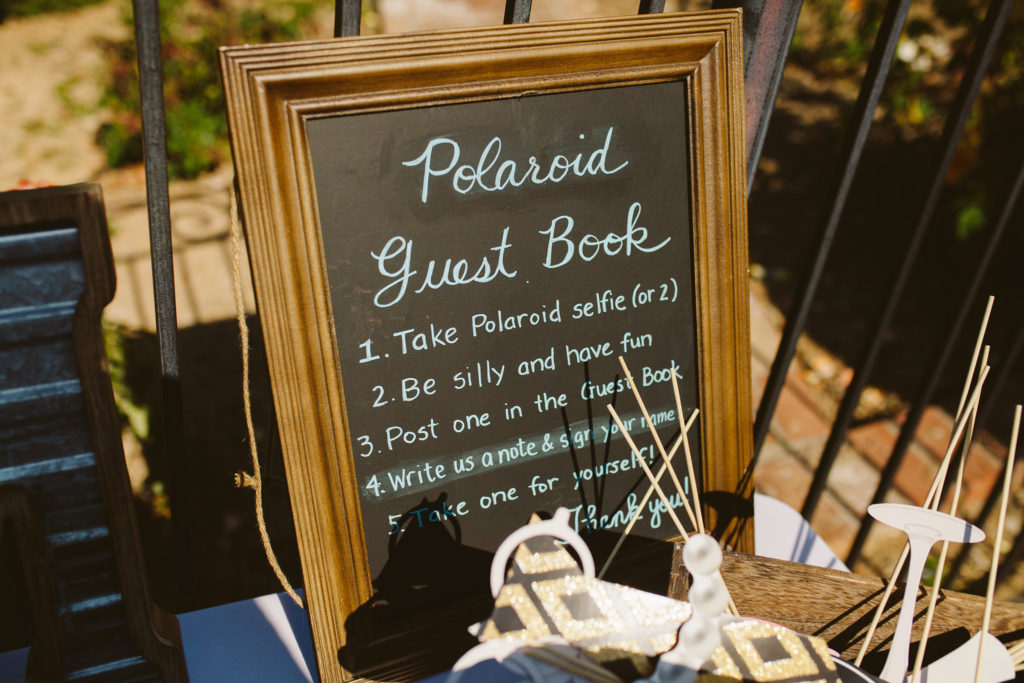 Polaroid
Guest Book
1. Take Polaroid selfie (or 2)
2. Be silly and have fun
3. Post one in the Guest Book
4. Write us a note & sign your name
5. Take one for yourself!
Thank you!